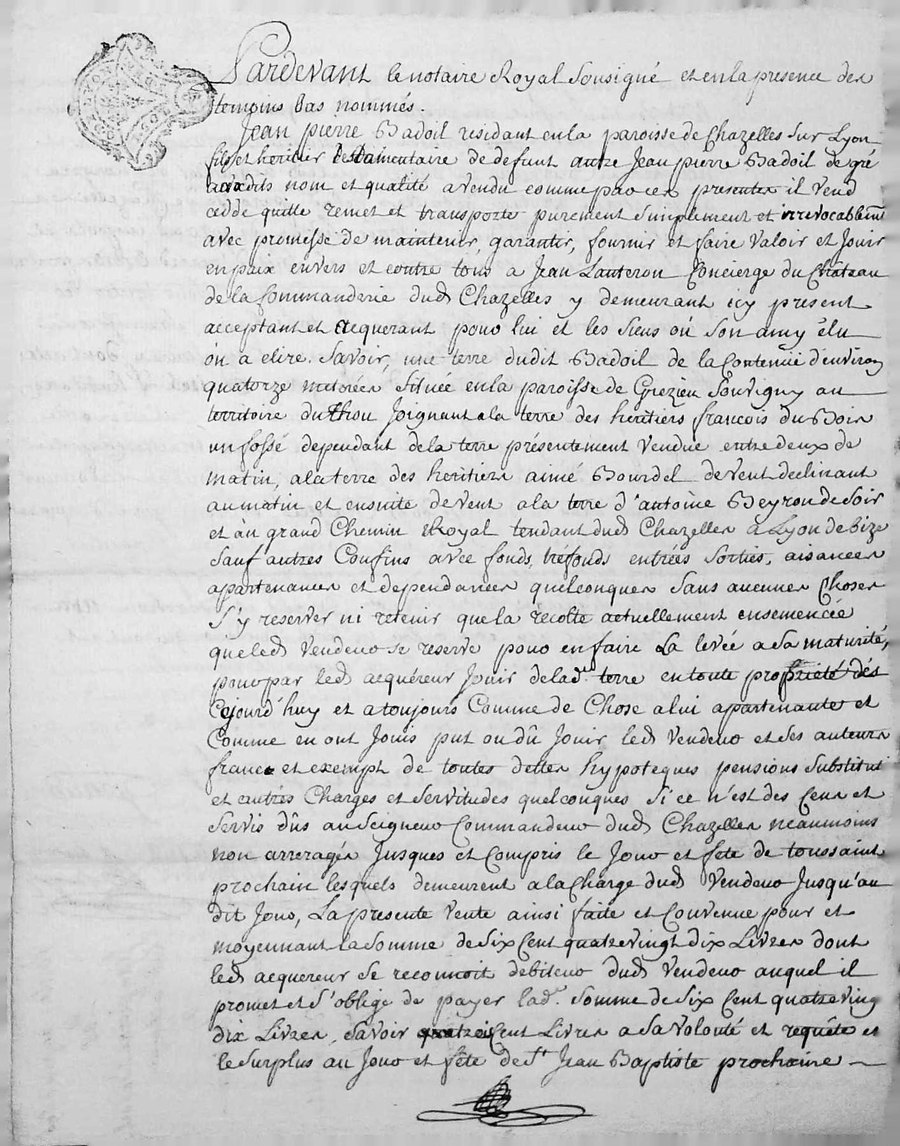 Pardevant le notaire Royal Sousigné et en la presence des
temoins bas nommés.
Jean pierre Badoil residant en la paroisse de Chazelles sur Lyon
fils et heritier testamentaire de defunt autre Jean pierre Badoil de gré
auxdits nom et qualité a vendu comme par ces presentes il vend
cedde quitte remet et transporte purement Simplement et irrevocablemt
avec promesse de maintenir, garantir, fournir et faire valoir et Jouir
en paix envers et contre tous a Jean Lauteron Concierge du Château
de la Commanderie dud Chazelles y demeurant icy present
acceptant et acquerant pour lui et les Siens ou Son amy élu
ou a elire. Savoir, une terre dudit Badoil de la Contenüe d'environ
quatorze metérées Située en la paroisse de Grezieu Souvigny au
territoire du thou Joignant a la terre des heritiers francois du Bois
un fossé dependant de la terre présentement vendüe entre deux de
matin, a la terre des heritiers aimé Bourdel de vent declinant
au matin et ensuite de vent a la terre d'antoine Beyron de Soir
et au grand Chemin Royal tendant dud Chazelles a Lyon de bize
Sauf autres Confins avec fonds, tréfonds entrées Sorties, aisances
apartenances et dependances quelconques Sans aucunes Choses
S'y reserver ni retenir que la récolte actuellement ensemencée
que led Vendeur se reserve pour en faire La levée a Sa maturité,
pour par led acquéreur Jouir de lad. terre en toute propriété dés
Cejourd'huy et a toujours Comme de Chose a lui apartenante et
Comme en ont Jouis put ou dû Jouir led Vendeur et Ses auteurs
france et exempt de toutes dettes hypoteques pensions Substitui
et autres Charges et Servitudes quelconques Si ce n'est des Cens et
Servis dûs au Seigneur Commandeur dud Chazelles neaumoins
non arreragés Jusques et Compris le Jour et fête de toussaint
prochain lesquels demeurent a la Charge dud Vendeur Jusqu'au
dit Jour, La presente Vente ainsi faite et Convenue pour et
moyennant la Somme de Six Cent quatrevingt dix Livres dont
led acquereur Se reconnoit debiteur dud Vendeur auquel il
promet et S'oblige de payer lad. Somme de Six Cent quatreving
dix Livres, Savoir Cent Livres a Sa volonté et requête et
le Surplus au Jour et fête de St. Jean Baptiste prochaine